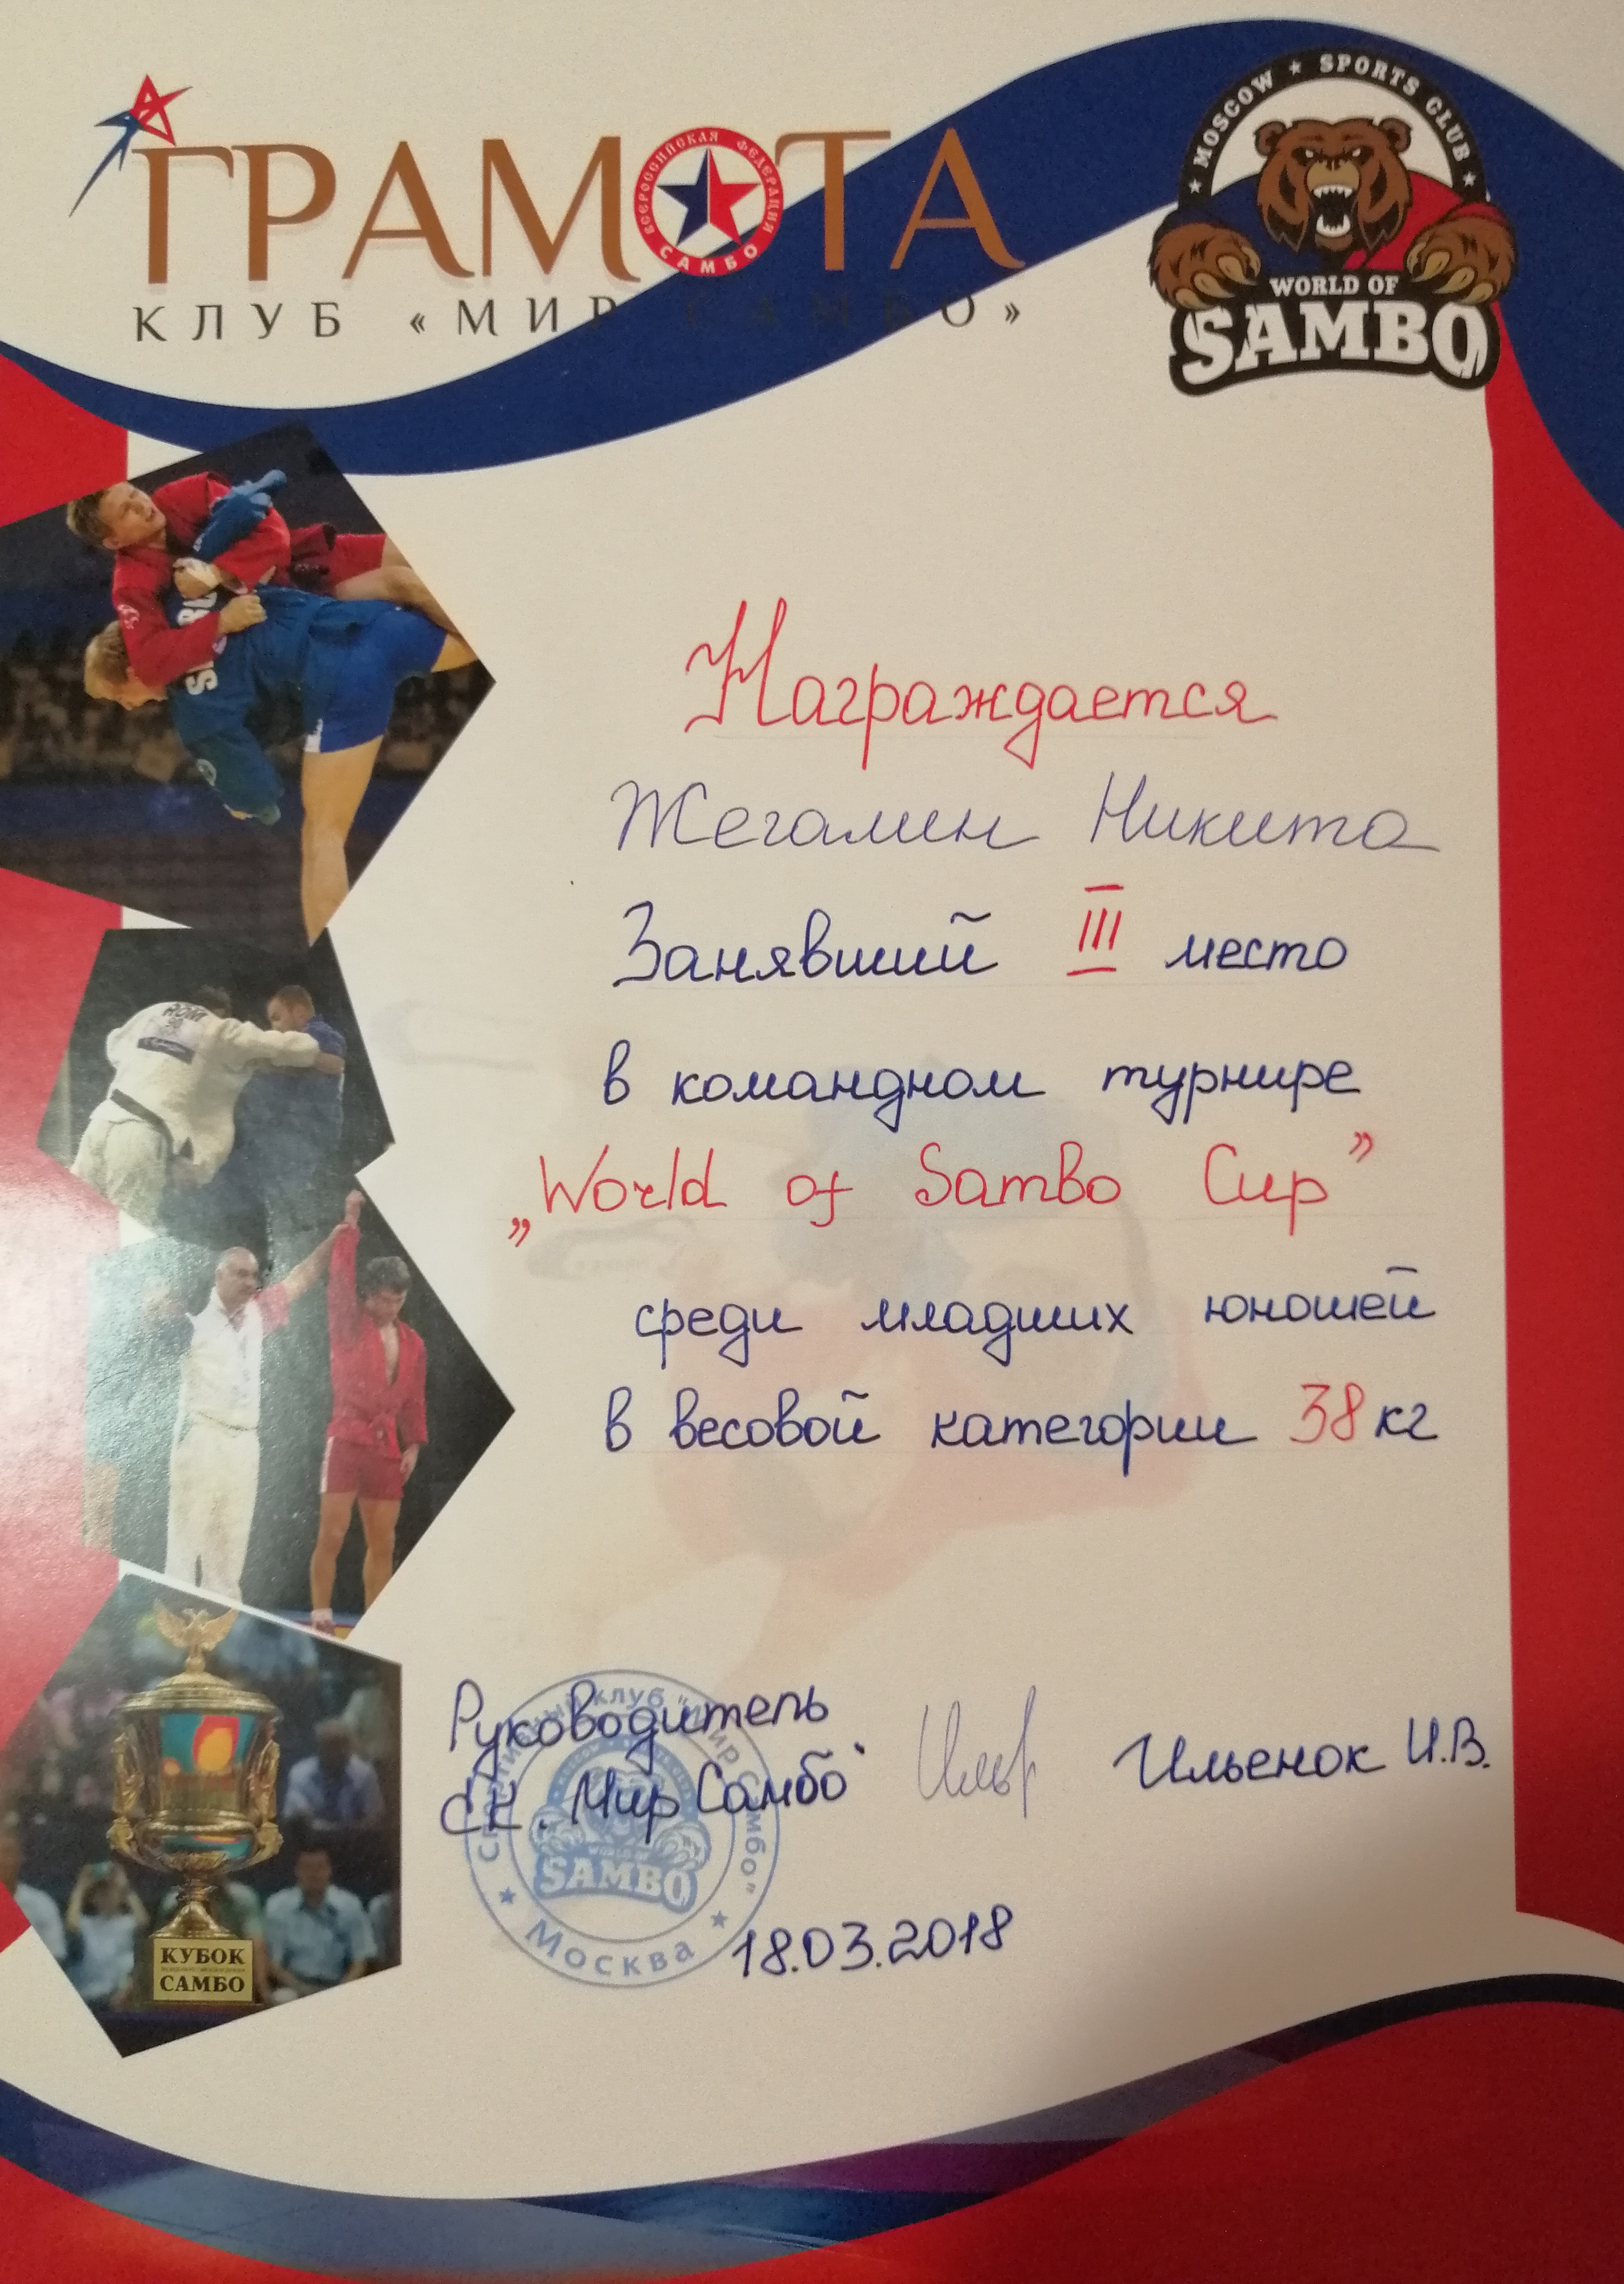 ГРАМОТА
ВСЕРОССИЙСКАЯ ФЕДЕРАЦИЯ САМБО
КЛУБ «МИР САМБО»
MOSCOW ★ SPORTS CLUB
WORLD OF
SAMBO
Награждается
Жегалин Никита
Занявший III место
в командном турнире
„World of Sambo Cup”
среди младших юношей
в весовой категории 38 кг
Руководитель
СК. Мир Самбо" Ильенок И.В.
Спортивный клуб "Мир Самбо"
WORLD OF
SAMBO
★ Москва ★
18.03.2018
ROM
КУБОК
САМБО